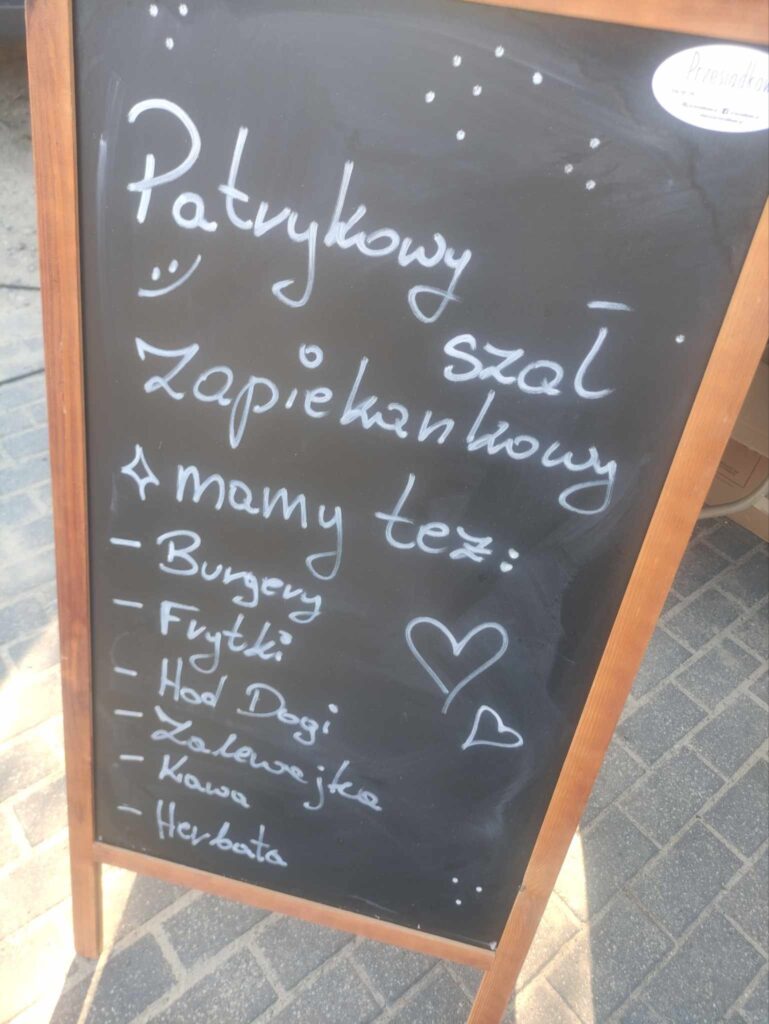 Przesiadkow
Patrykowy
szał
zapiekankowy
mamy też:
- Burgery
- Frytki
- Hod Dogi
- Zalewajka
- Kawa
- Herbata